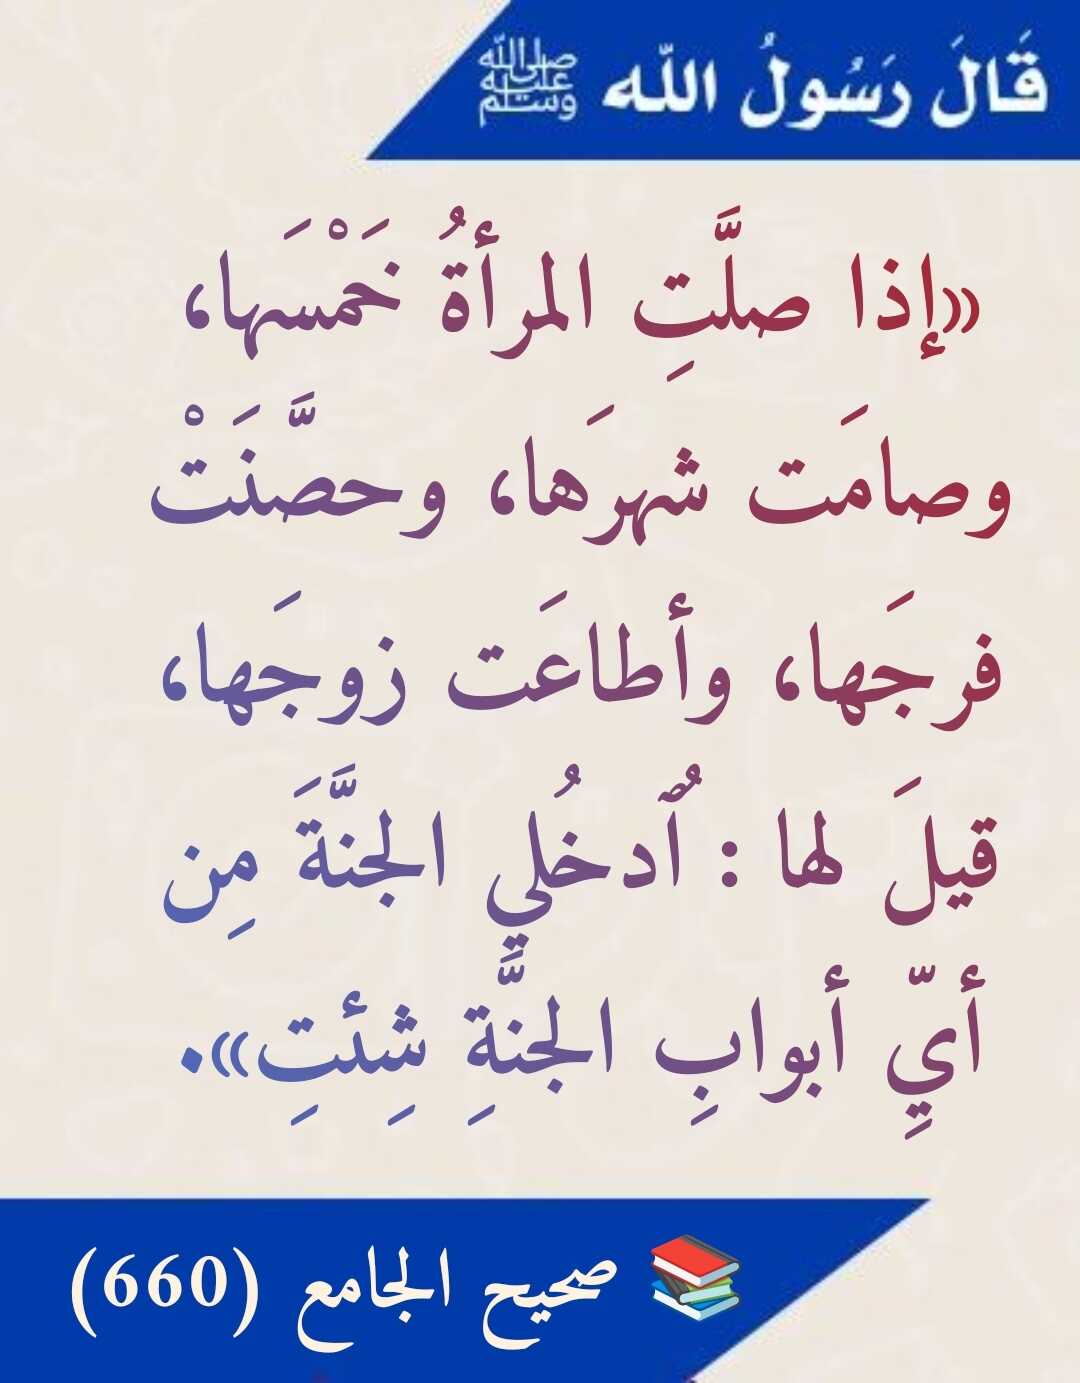 قَالَ رَسُولُ اللّه ﷺ
«إذا صلَّتِ المرأةُ خَمْسَها،
وصامَت شهرَها، وحصَّنَتْ
فرجَها، وأطاعَت زوجَها،
قيلَ لها : ٱُدخُلي الجنَّةَ مِن
أيِّ أبوابِ الجنَّةِ شِئتِ».
📚 صحيح الجامع (660)